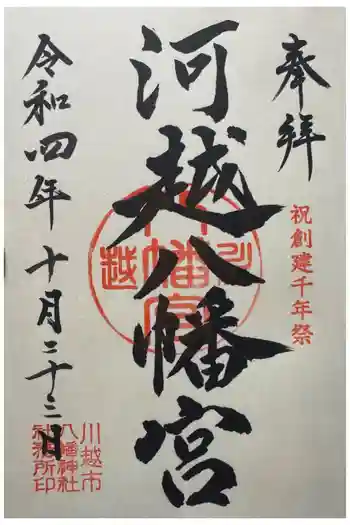 奉拝
祝創建千年祭
河越八幡宮
令和四年十月二十二日
川越市
八幡神社
社務所印